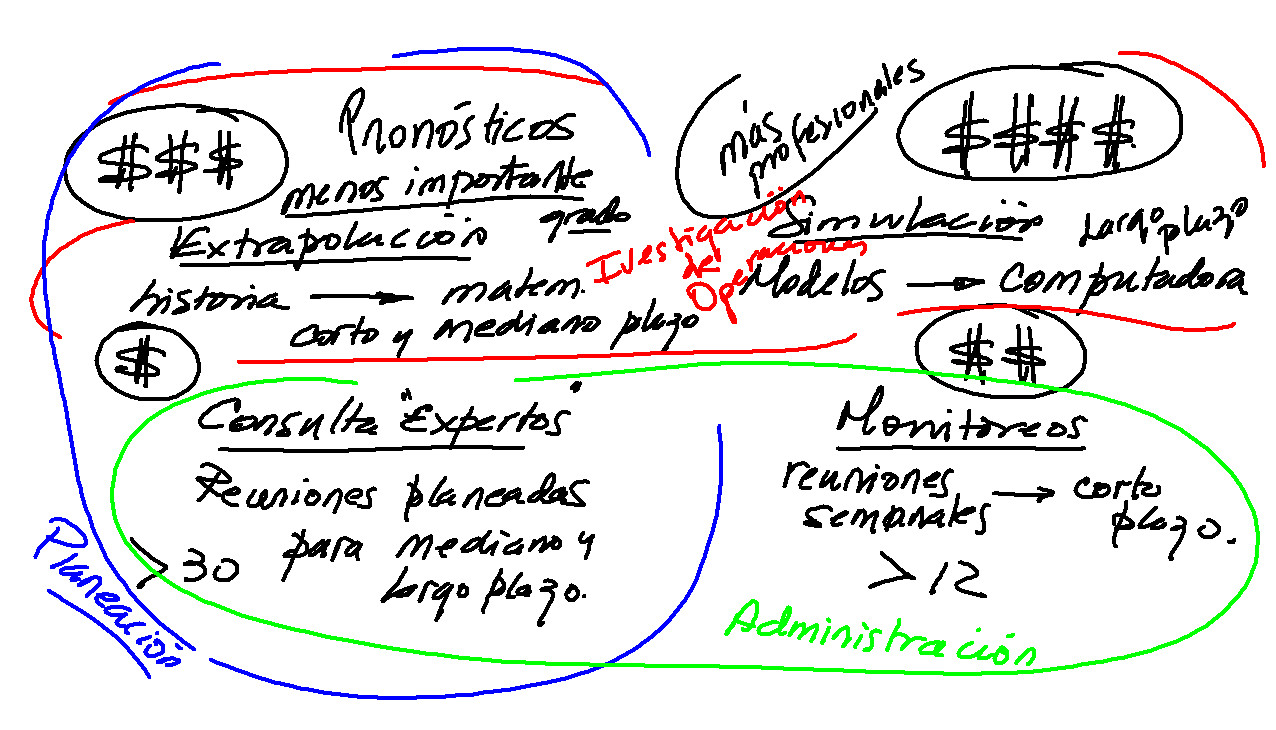 $$$
Pronósticos
menos importante
grado
Extrapolación
historia → matem.
corto y mediano plazo
más
profesionales
$$$$
Simulación
Largo plazo
Modelos → computadora
Ivestigación
de
Operaciones
$
Consulta "Expertos"
Reuniones planeadas
para mediano y
largo plazo.
> 30
$$
Monitoreos
reuniones
semanales → corto
plazo.
> 12
Planeación
Administración